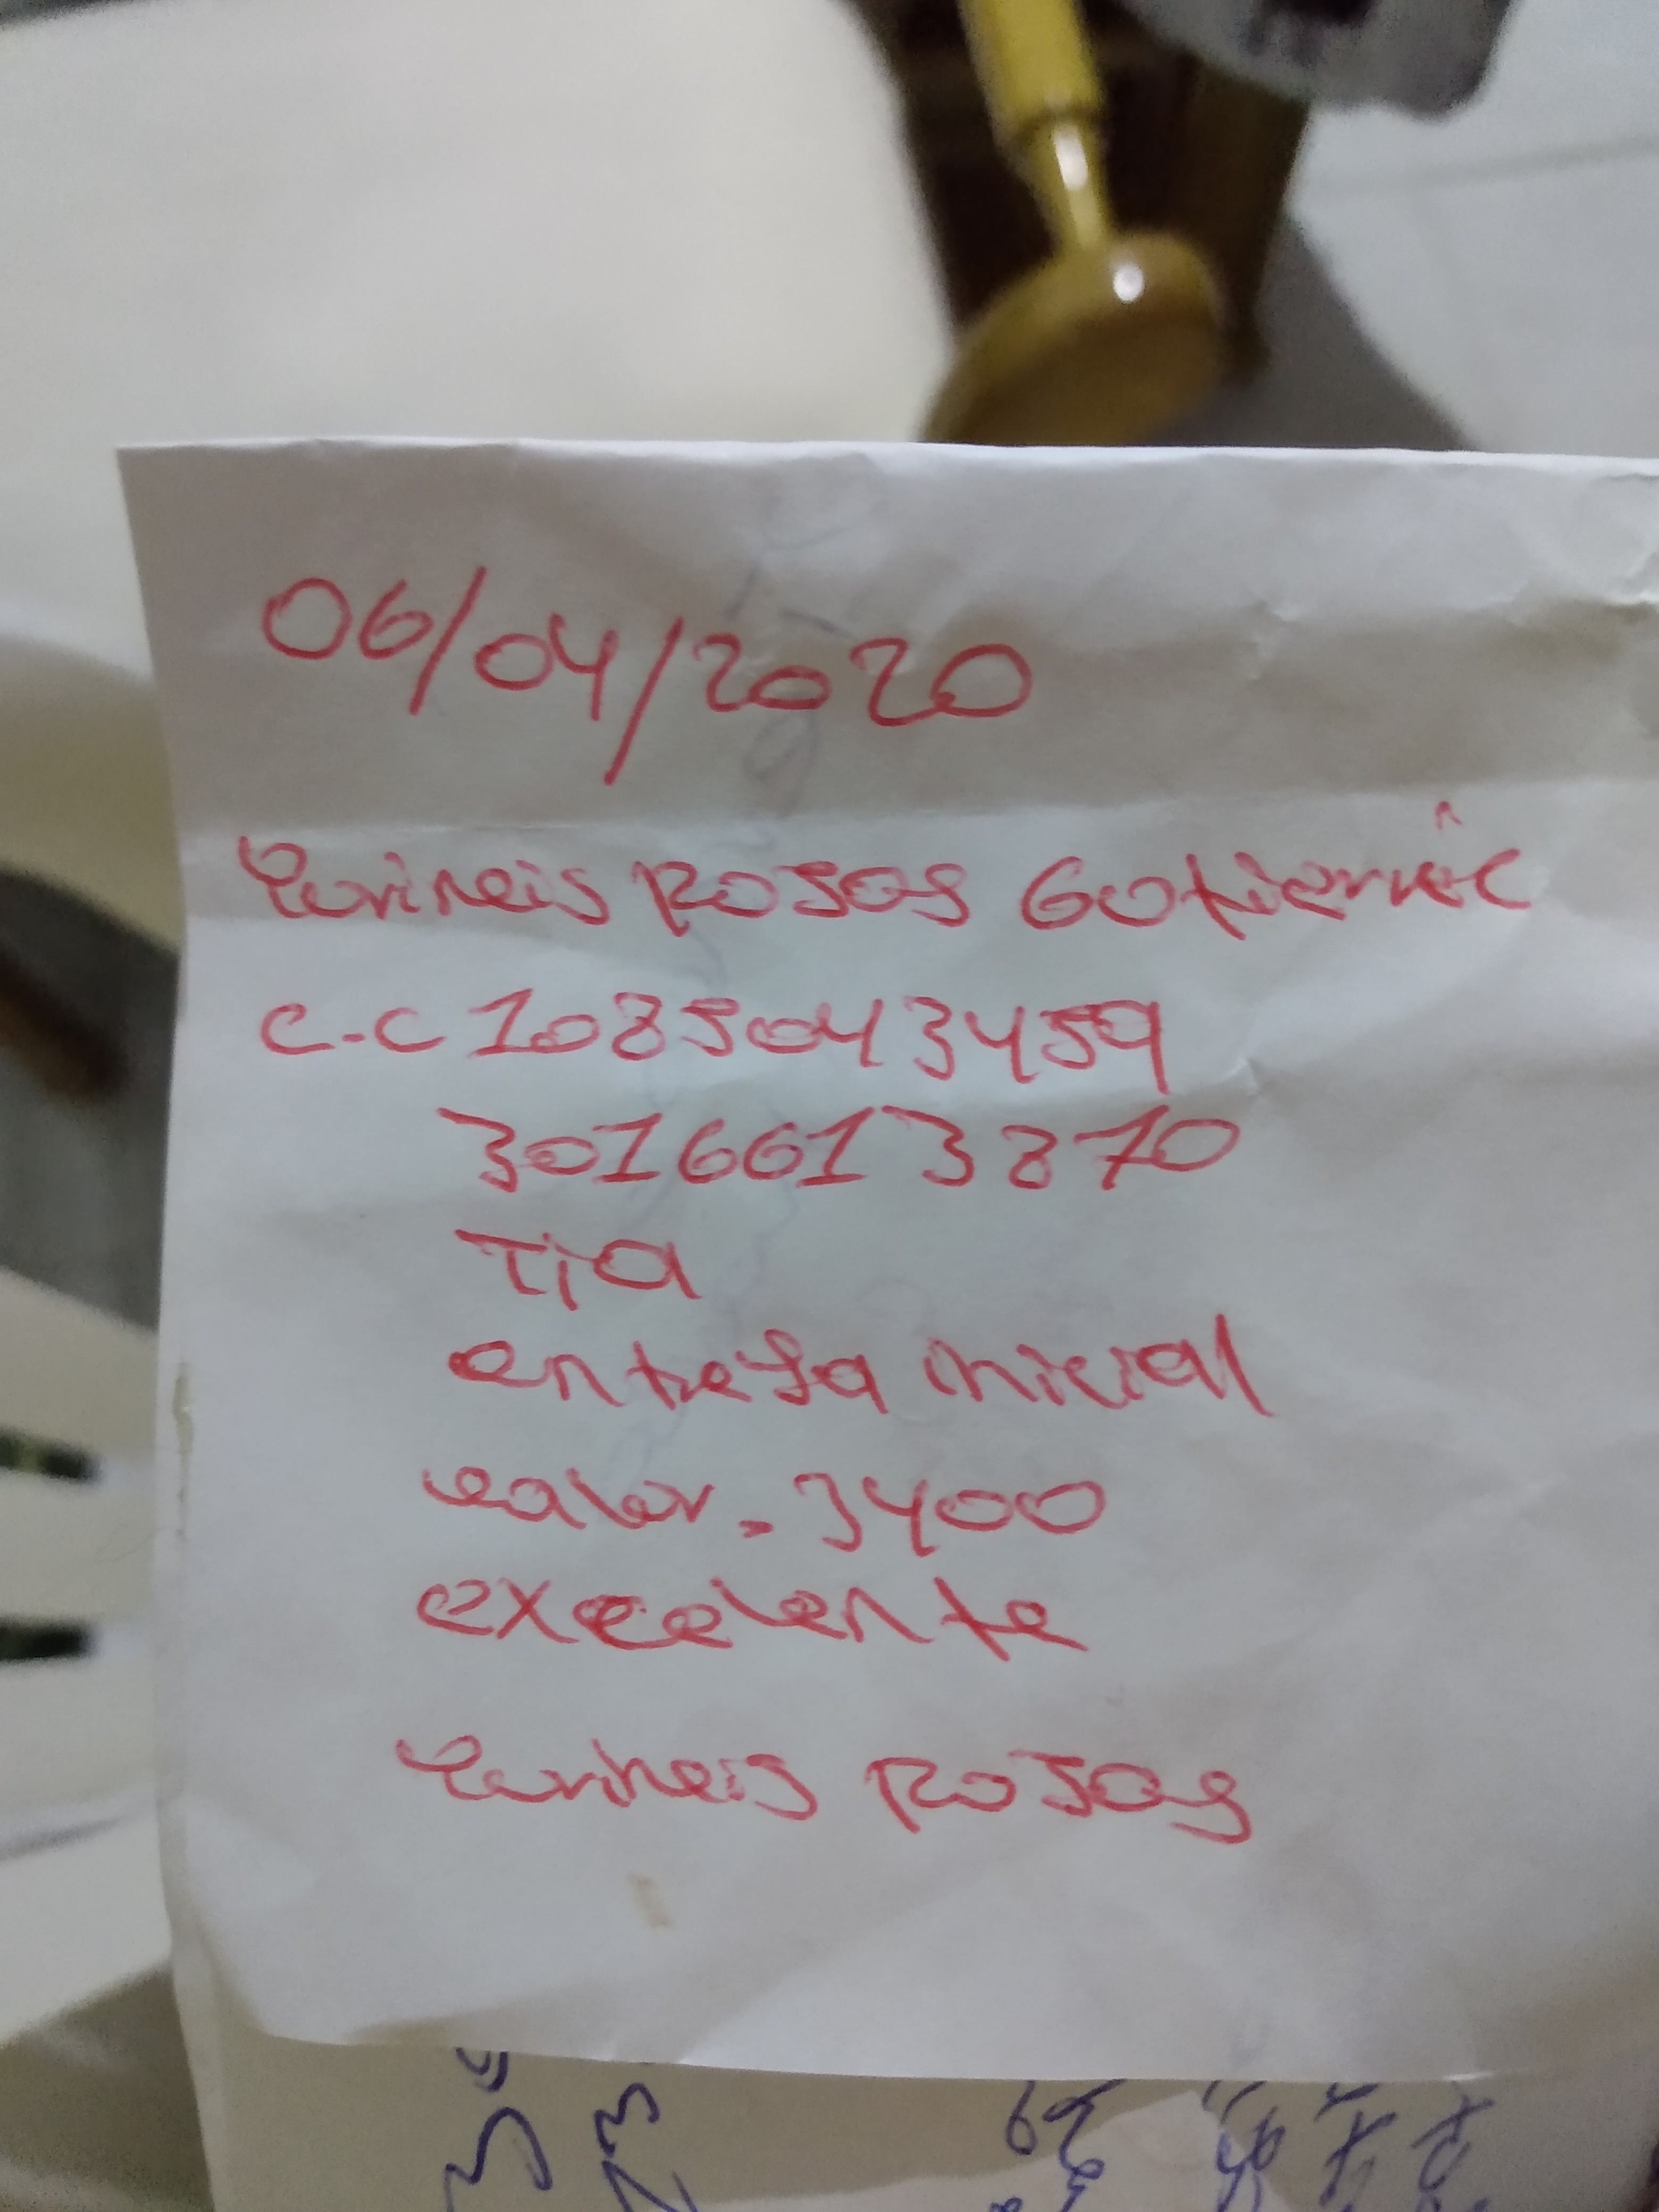 06/04/2020
Yurineis Rojas Gutierrez
C.C 1085043459
3016613870
Tia
entrega inicial
valor. 3400
excelente
Yurineis Rojas